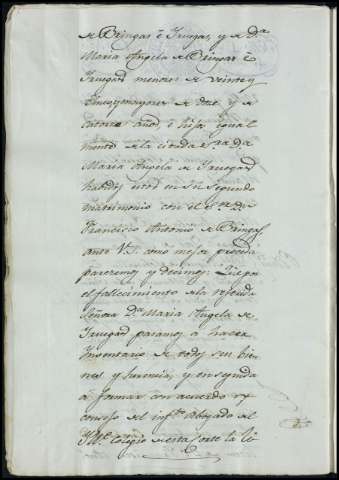 de Bringas é Yruegas, y de D.ª
Maria Angela de Bringas é
Yruegas menores de veinte y
cinco y mayores de doce, y de
catorce años, é hijos igual
mente de la citada S.ra D.ª
Maria Angela de Yruegas
habidos en su segundo
matrimonio con el S.r D.n
Francisco Antonio de Bringas
ante V.S. como mejor proceda
parecemos y decimos: Que por
el fallecimiento de la referida
Señora D.ª Maria Angela de
Yruegas pasamos á hacer
Inventario de todos sus bie
nes y herencia, y en seguida
á formar con acuerdo y
consejo del Abogado del
Ill.e Colegio de esta Corte la